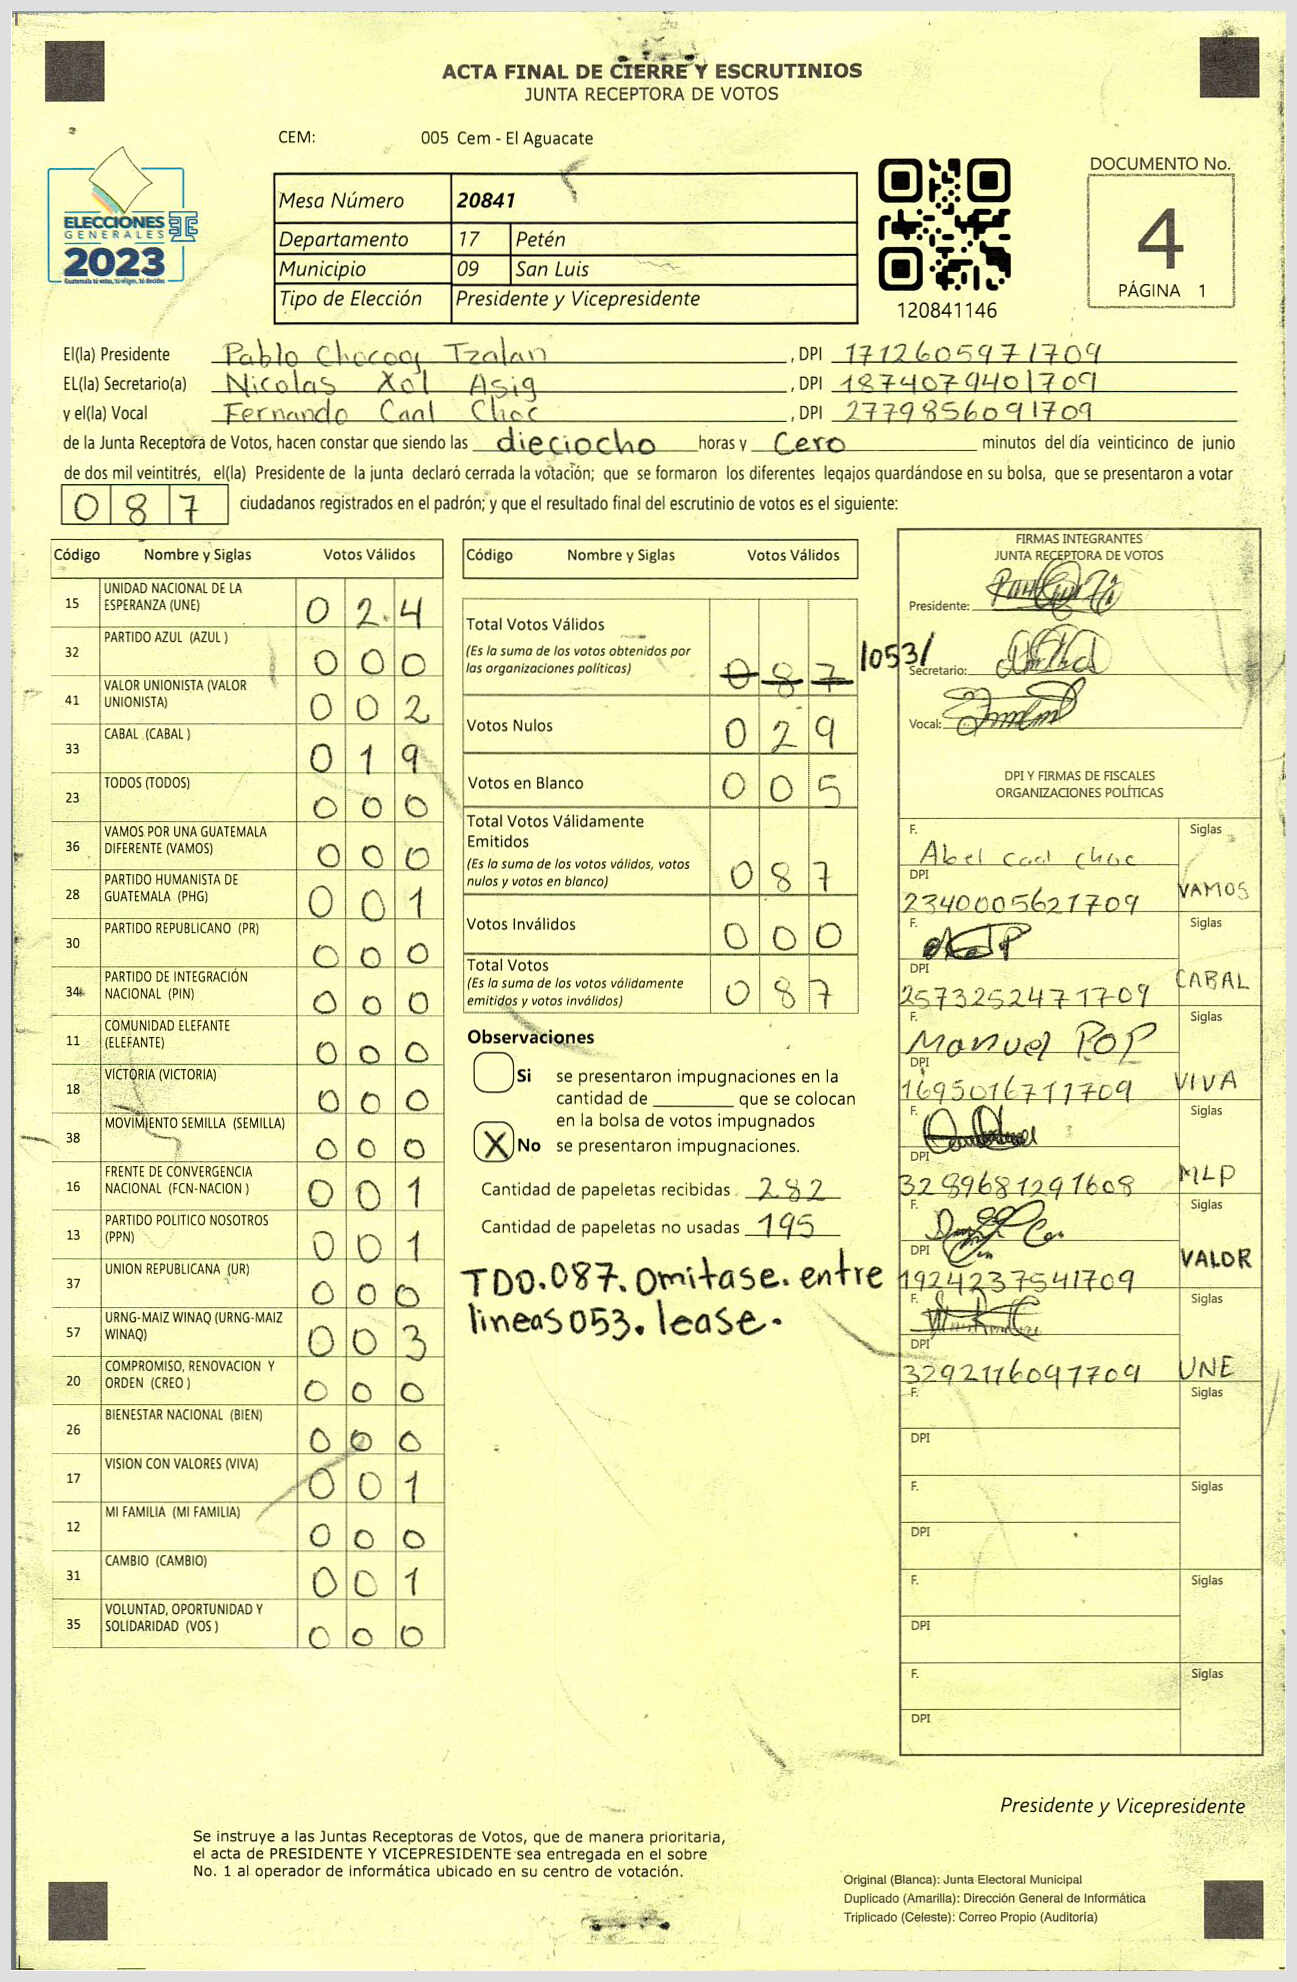 ACTA FINAL DE CIERRE Y ESCRUTINIOS
JUNTA RECEPTORA DE VOTOS
CEM: 005 Cem - El Aguacate
ELECCIONES
GENERALES
2023
Mesa Número 20841
Departamento 17 Petén
Municipio 09 San Luis
Tipo de Elección Presidente y Vicepresidente
120841146
DOCUMENTO No.
4
PÁGINA 1
El(la) Presidente Pablo Chocooj Tzalan, DPI 1712605971709
EL(la) Secretario(a) Nicolas Xol Asig, DPI 1874079401709
y el(la) Vocal Fernando Caal Choc, DPI 2779856091709
de la Junta Receptora de Votos, hacen constar que siendo las dieciocho horas y Cero minutos del día veinticinco de junio
de dos mil veintitrés, el(la) Presidente de la junta declaró cerrada la votación; que se formaron los diferentes legajos quardándose en su bolsa, que se presentaron a votar
087 ciudadanos registrados en el padrón; y que el resultado final del escrutinio de votos es el siguiente:
Código Nombre y Siglas Votos Válidos
15 UNIDAD NACIONAL DE LA
ESPERANZA (UNE) 0 2 4
32 PARTIDO AZUL (AZUL ) 0 0 0
41 VALOR UNIONISTA (VALOR
UNIONISTA) 0 0 2
33 CABAL (CABAL ) 0 1 9
23 TODOS (TODOS) 0 0 0
36 VAMOS POR UNA GUATEMALA
DIFERENTE (VAMOS) 0 0 0
28 PARTIDO HUMANISTA DE
GUATEMALA (PHG) 0 0 1
30 PARTIDO REPUBLICANO (PR) 0 0 0
34 PARTIDO DE INTEGRACIÓN
NACIONAL (PIN) 0 0 0
11 COMUNIDAD ELEFANTE
(ELEFANTE) 0 0 0
18 VICTORIA (VICTORIA) 0 0 0
38 MOVIMIENTO SEMILLA (SEMILLA) 0 0 0
16 FRENTE DE CONVERGENCIA
NACIONAL (FCN-NACION ) 0 0 1
13 PARTIDO POLITICO NOSOTROS
(PPN) 0 0 1
37 UNION REPUBLICANA (UR) 0 0 0
57 URNG-MAIZ WINAQ (URNG-MAIZ
WINAQ) 0 0 3
20 COMPROMISO, RENOVACION Y
ORDEN (CREO ) 0 0 0
26 BIENESTAR NACIONAL (BIEN) 0 0 0
17 VISION CON VALORES (VIVA) 0 0 1
12 MI FAMILIA (MI FAMILIA) 0 0 0
31 CAMBIO (CAMBIO) 0 0 1
35 VOLUNTAD, OPORTUNIDAD Y
SOLIDARIDAD (VOS ) 0 0 0
Código Nombre y Siglas Votos Válidos
Total Votos Válidos
(Es la suma de los votos obtenidos por
las organizaciones políticas) 0 8 7 /053/
Votos Nulos 0 2 9
Votos en Blanco 0 0 5
Total Votos Válidamente
Emitidos
(Es la suma de los votos válidos, votos
nulos y votos en blanco) 0 8 7
Votos Inválidos 0 0 0
Total Votos
(Es la suma de los votos válidamente
emitidos y votos inválidos) 0 8 7
Observaciones
Si se presentaron impugnaciones en la
cantidad de ________ que se colocan
en la bolsa de votos impugnados
X No se presentaron impugnaciones.
Cantidad de papeletas recibidas 282
Cantidad de papeletas no usadas 195
TDO.087.Omitase.entre
lineas 053. lease.
FIRMAS INTEGRANTES
JUNTA RECEPTORA DE VOTOS
Presidente:
Secretario:
Vocal:
DPI Y FIRMAS DE FISCALES
ORGANIZACIONES POLÍTICAS
F. Siglas
Abel caal choc
DPI
2340005621709 VAMOS
F. Siglas
DPI
2573252471709 CABAL
F. Siglas
Manuel POP
DPI
1695016711709 VIVA
F. Siglas
DPI
3289681291608 MLP
F. Siglas
DPI
1924237541709 VALOR
F. Siglas
DPI
3292116091709 UNE
F. Siglas
DPI
F. Siglas
DPI
F. Siglas
DPI
F. Siglas
DPI
Presidente y Vicepresidente
Se instruye a las Juntas Receptoras de Votos, que de manera prioritaria,
el acta de PRESIDENTE Y VICEPRESIDENTE sea entregada en el sobre
No. 1 al operador de informática ubicado en su centro de votación.
Original (Blanca): Junta Electoral Municipal
Duplicado (Amarilla): Dirección General de Informática
Triplicado (Celeste): Correo Propio (Auditoría)